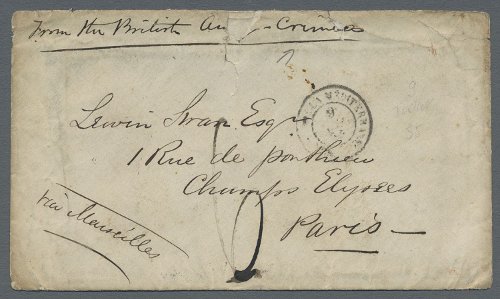 From the British Army Crimea
Lewin Swan Esqr
1 Rue de Ponthieu
Champs Elysees
Paris
via Marseilles
MEDITERRANEE
9